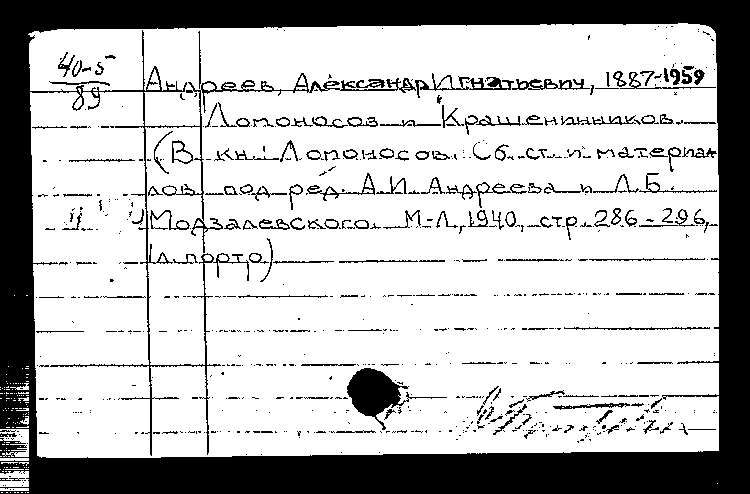 40-5
89
Андреев, Александр Игнатьевич, 1887-1959
Ломоносов и Крашенинников.
(В кн.: Ломоносов. Сб. ст. и материа-
лов под ред. А.И. Андреева и Л.Б.
Модзалевского. М-Л., 1940, стр. 286-296,
1 л. портр.)